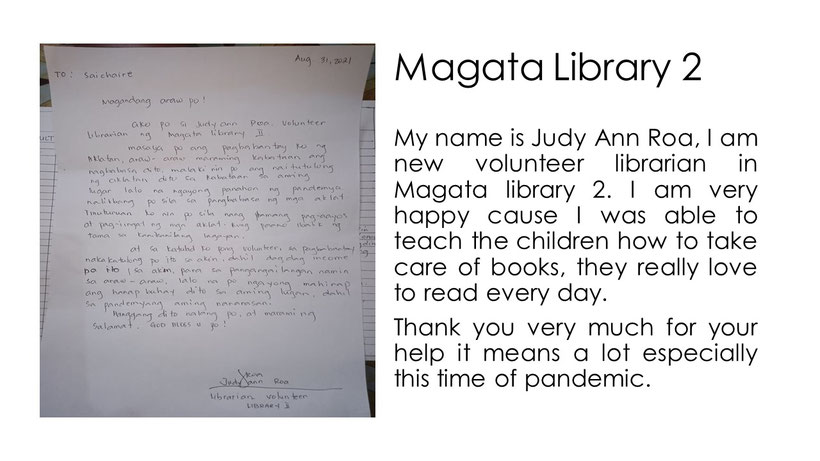 Aug. 31, 2021
TO: Saichaire
Magandang araw po!
ako po si Judy ann Roa, volunteer
librarian ng Magata library II.
masaya po ang pagbabantay ko ng
Aklatan, araw-araw maraming kabataan ang
nagbabasa dito, malaki rin po ang naitutulong
ng aklatan dito sa kabataan sa aming
lugar lalo na ngayong panahon ng pandemya
nalilibang po sila sa pagbabasa ng mga aklat
tinuturuan ko rin po sila nang tamang pag-aayos
at pag-iingat ng mga aklat. kung paano ibalik ng
tama sa kanikanilang lagayan.
at sa katulad ko pong volunteer sa pagbabantay
nakakatulong po ito sa akin, dahil dagdag income
po ito sa akin, para sa pangangailangan namin
sa araw-araw, lalo na po ngayong mahirap
ang hanap buhay dito sa aming lugar, dahil
sa pandemyang aming nararanasan.
Hanggang dito nalang po, at maraming
salamat. GOD BLESS U po!
Judy ann Roa
librarian volunteer
LIBRARY II
Magata Library 2
My name is Judy Ann Roa, I am
new volunteer librarian in
Magata library 2. I am very
happy cause I was able to
teach the children how to take
care of books, they really love
to read every day.
Thank you very much for your
help it means a lot especially
this time of pandemic.